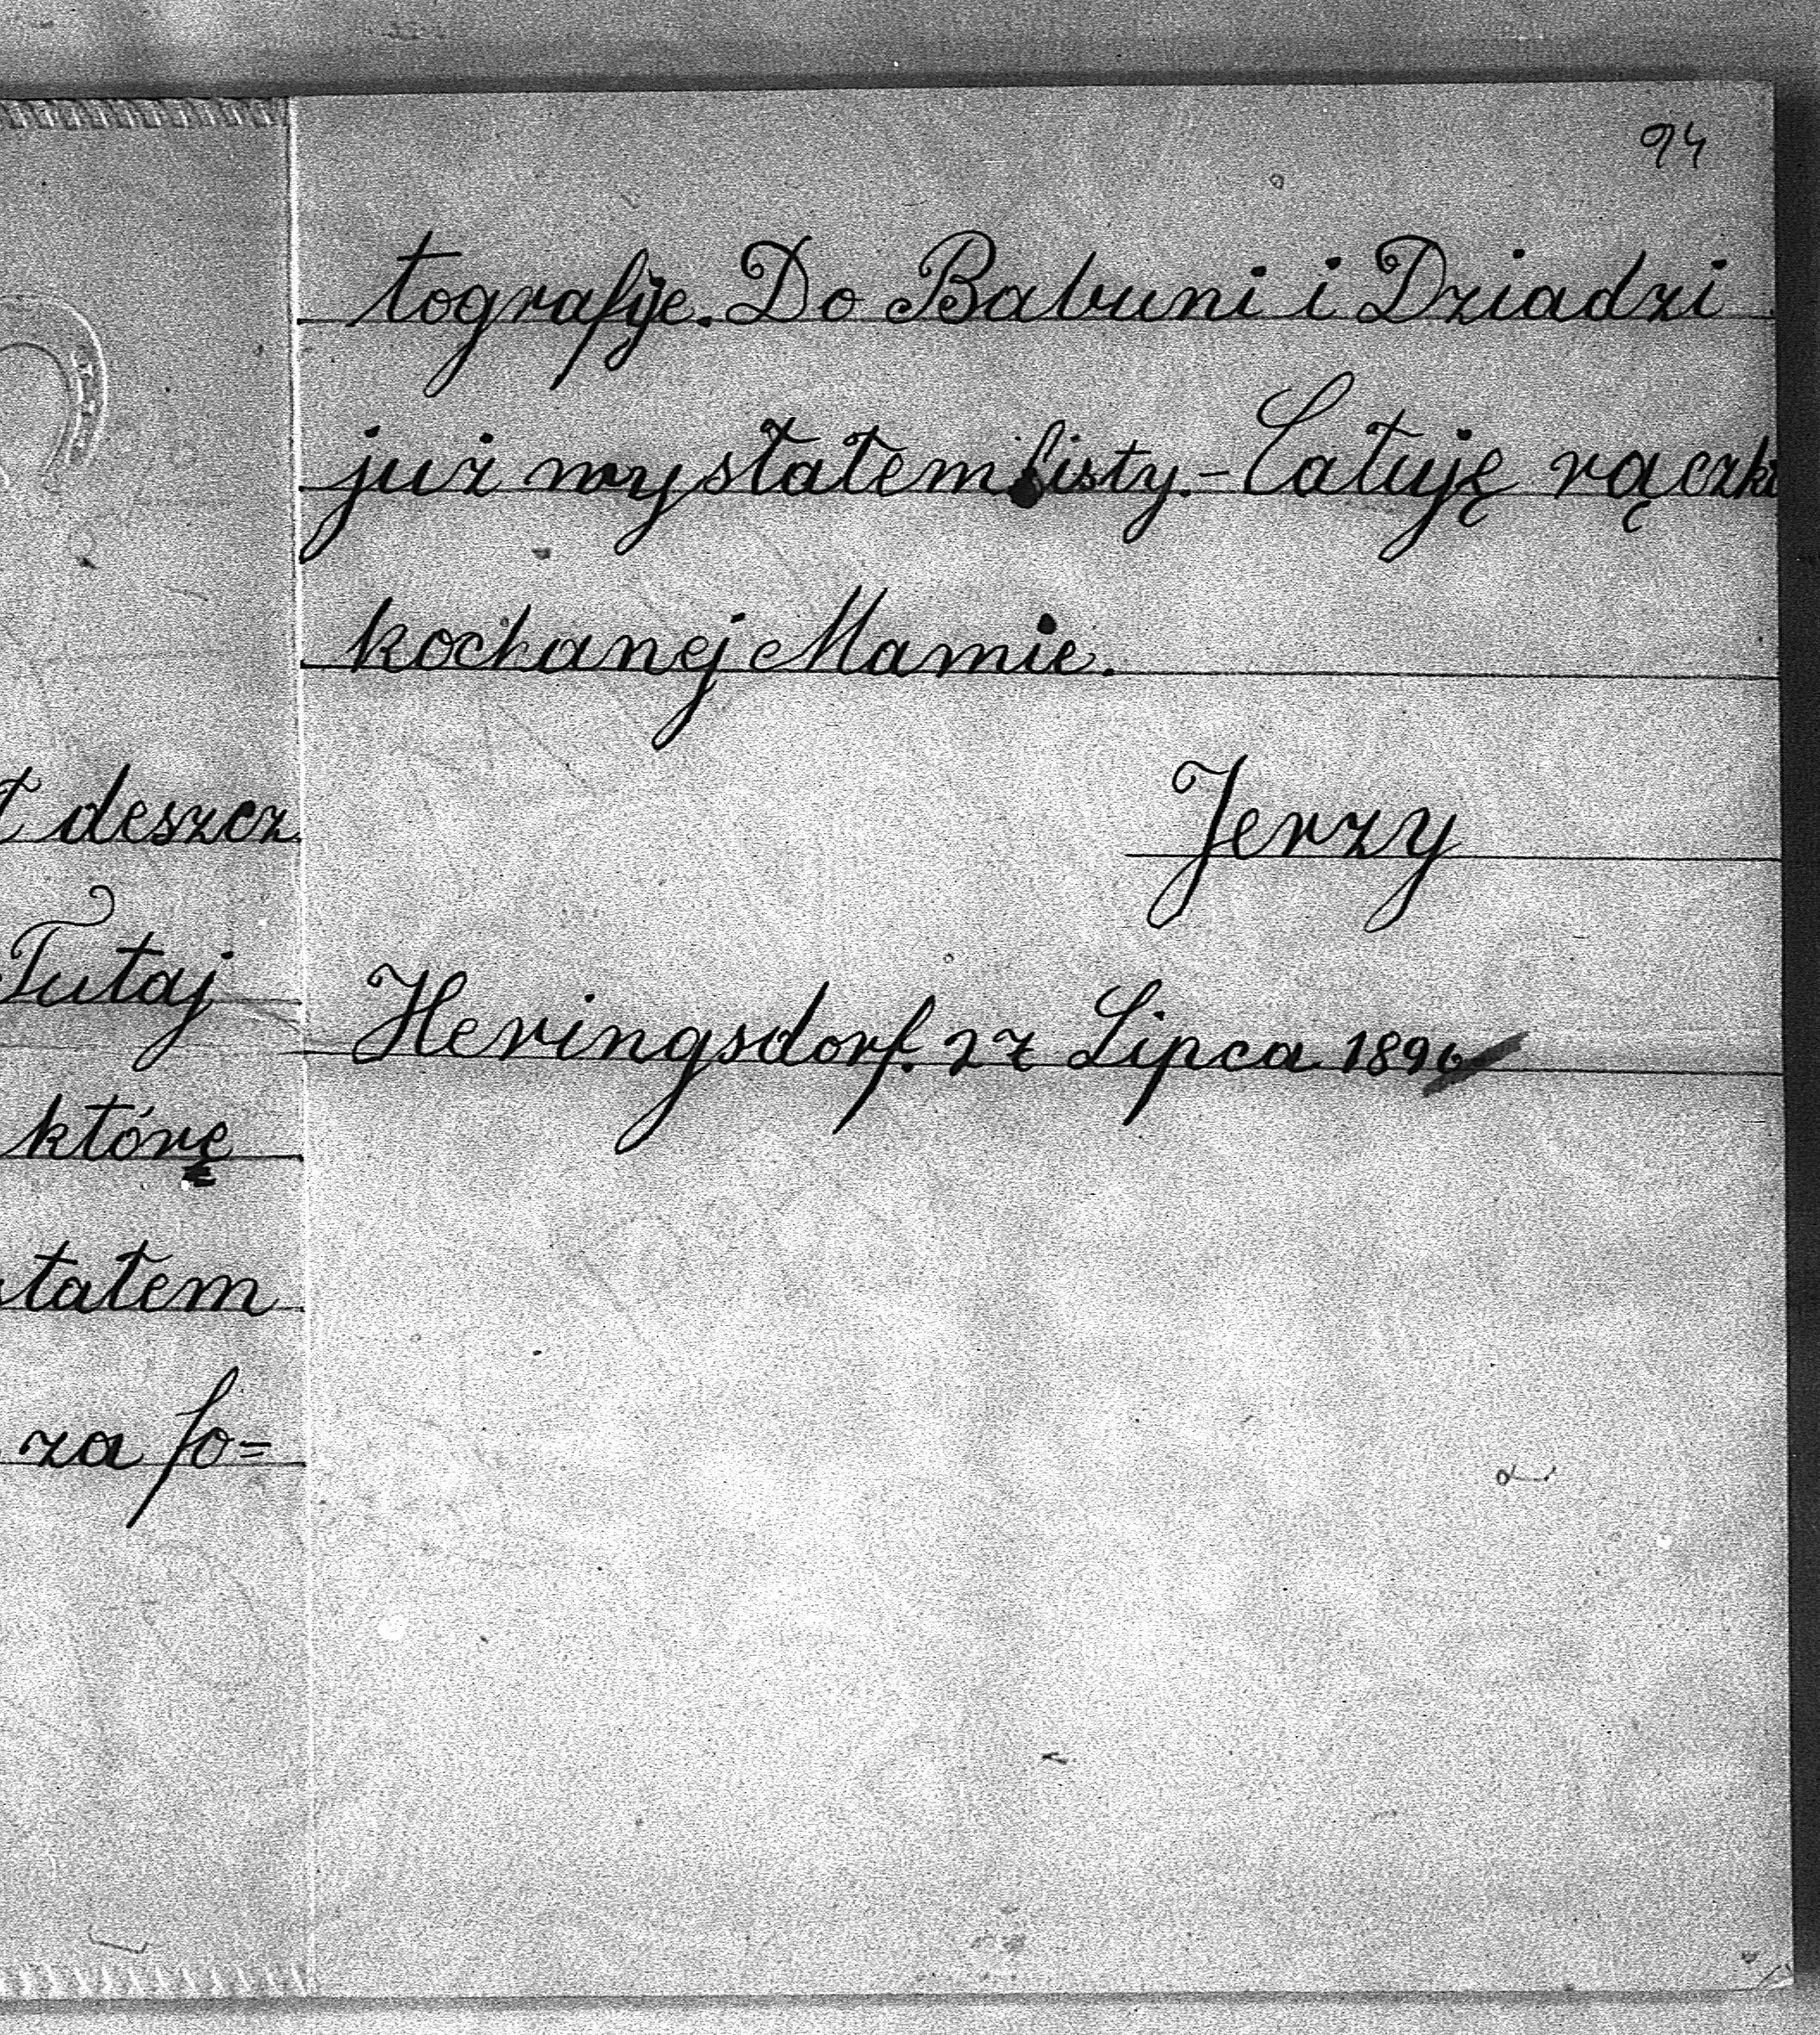 t deszcz
Tutaj
którę
tałem
za fo=
94
tografije. Do Babuni i Dziadzi
już wysłałem listy. - Całuję rączki
kochanej Mamie.
Jerzy
Heringsdorf. 27 Lipca 1896